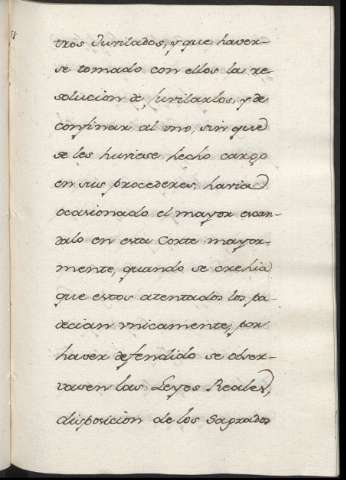 tros Jurilados, y que haver-
se tomado con ellos la re
solucion de Jurilarlos, y de
confinar al uno, sin que
se les huviese hecho cargo
en sus procederes, havia
ocasionado el mayor escan-
dalo en esta Corte mayor-
mente, quando se crehia
que estos atentados los pa-
decian vnicamente, por
haver defendido se obser-
vasen las Leyes Reales,
disposicion de los Sagrados